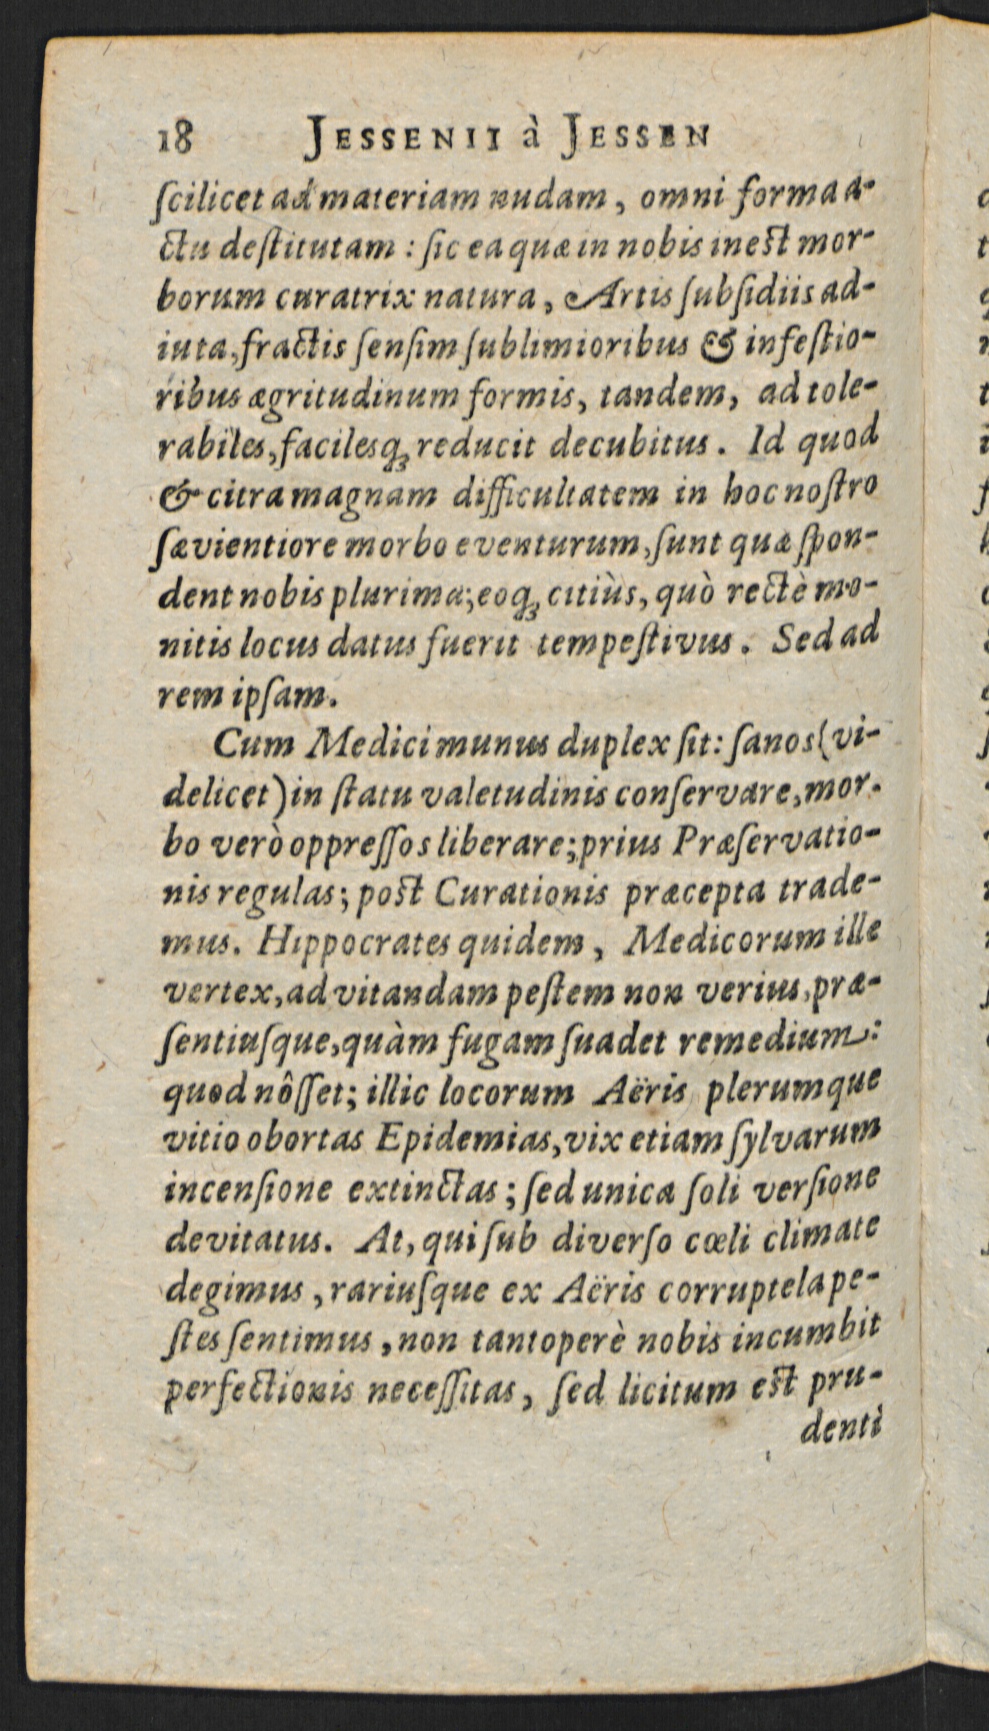 18 JESSENII à JESSEN
ſcilicet ad materiam nudam, omni forma a-
ctu deſtitutam: ſic ea quæ in nobis ineſt mor-
borum curatrix natura, Artis ſubſidiis ad-
iuta, fractis ſenſim ſublimioribus & infeſtio-
ribus ægritudinum formis, tandem, ad tole-
rabiles, facilesq́ꝫ reducit decubitus. Id quod
& citra magnam difficultatem in hoc noſtro
ſævientiore morbo eventurum, ſunt quæ ſpon-
dent nobis plurima; eoqꝫ citiùs, quò rectè mo-
nitis locus datus fuerit tempeſtivus. Sed ad
rem ipſam.
Cum Medici munus duplex ſit: ſanos (vi-
delicet) in ſtatu valetudinis conſervare, mor-
bo verò oppreſſos liberare; prius Præſervatio-
nis regulas; poſt Curationis præcepta trade-
mus. Hippocrates quidem, Medicorum ille
vertex, ad vitandam peſtem non verius, præ-
ſentiuſque, quàm fugam ſuadet remedium:
quod nôſſet; illic locorum Aëris plerumque
vitio obortas Epidemias, vix etiam ſylvarum
incenſione extinctas; ſed unica ſoli verſione
devitatus. At, qui ſub diverſo cœli climate
degimus, rariuſque ex Aëris corruptela pe-
ſtes ſentimus, non tantoperè nobis incumbit
perfectionis neceſſitas, ſed licitum eſt pru-
denti